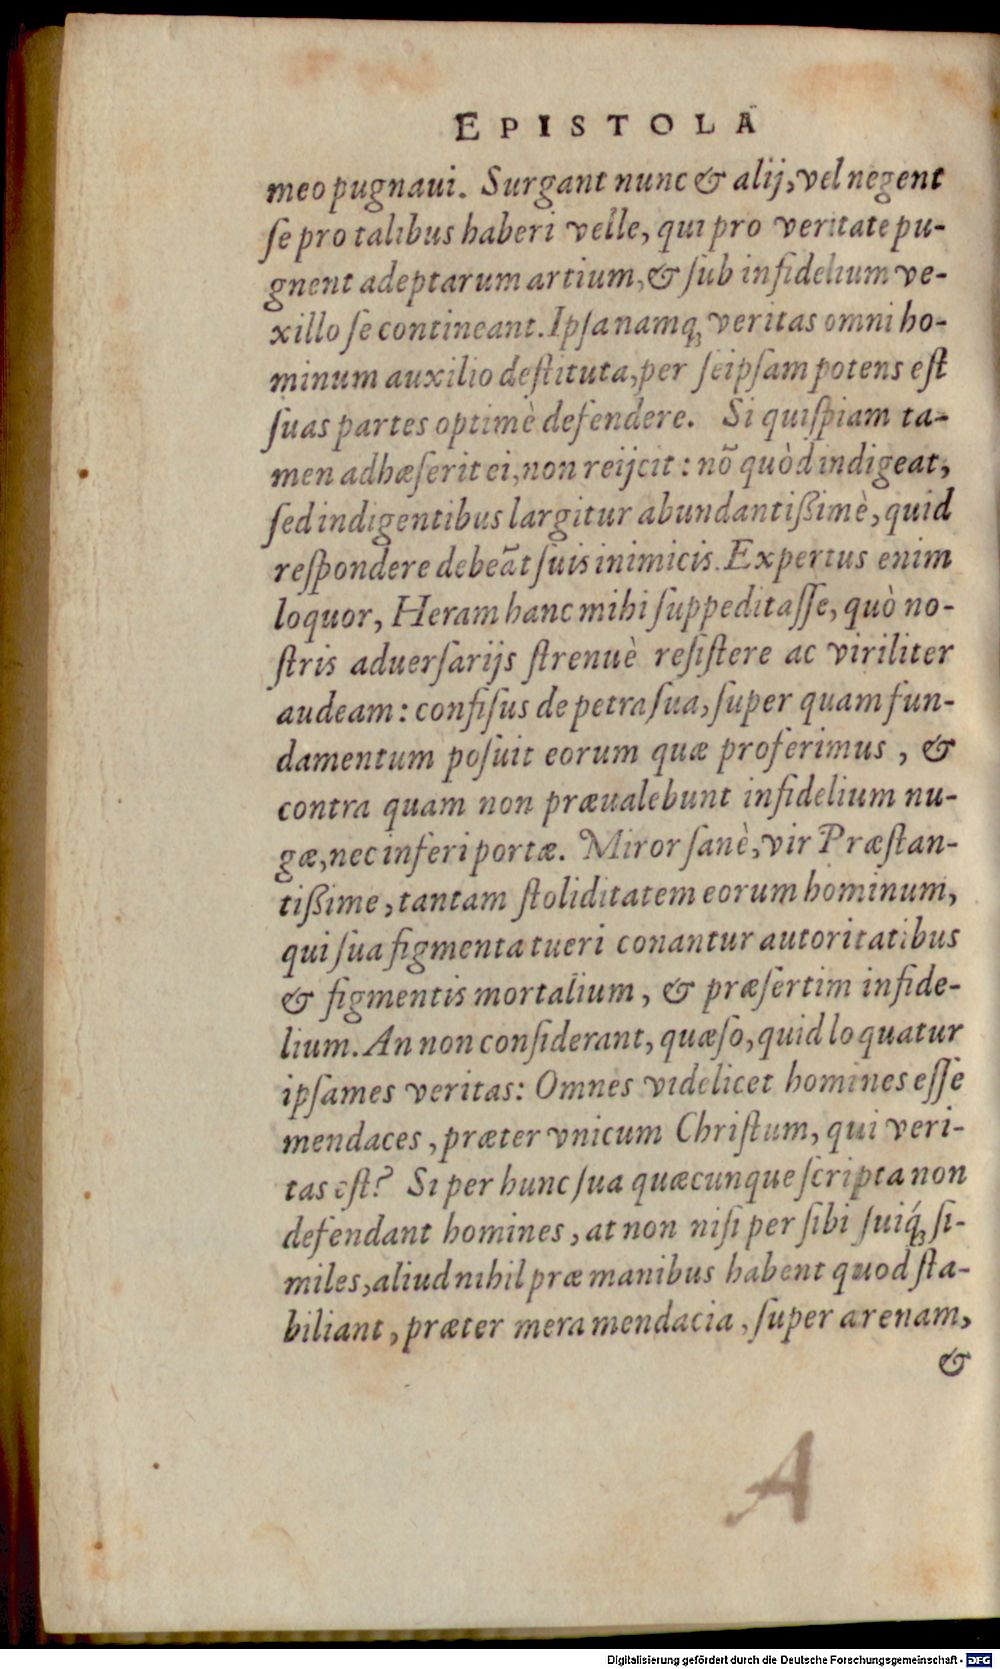 EPISTOLA
meo pugnaui. Surgant nunc & alij, vel negent
ſe pro talibus haberi velle, qui pro veritate pu-
gnent adeptarum artium, & ſub infidelium ve-
xillo ſe contineant. Ipſa namq; veritas omni ho-
minum auxilio deſtituta, per ſeipſam potens eſt
ſuas partes optimè defendere. Si quiſpiam ta-
men adhæſerit ei, non reijcit: nõ quòd indigeat,
ſed indigentibus largitur abundantißimè, quid
reſpondere debeãt ſuis inimicis. Expertus enim
loquor, Heram hanc mihi ſuppeditaſſe, quò no-
ſtris aduerſarijs ſtrenuè reſiſtere ac viriliter
audeam: confiſus de petra ſua, ſuper quam fun-
damentum poſuit eorum quæ proferimus, &
contra quam non præualebunt infidelium nu-
gæ, nec inferi portæ. Miror ſanè, vir Præſtan-
tißime, tantam ſtoliditatem eorum hominum,
qui ſua figmenta tueri conantur autoritatibus
& figmentis mortalium, & præſertim infide-
lium. An non conſiderant, quæſo, quid loquatur
ipſames veritas: Omnes videlicet homines eſſe
mendaces, præter vnicum Chriſtum, qui veri-
tas eſt? Si per hunc ſua quæcunque ſcripta non
defendant homines, at non niſi per ſibi ſuiq́; ſi-
miles, aliud nihil præ manibus habent quod ſta-
biliant, præter mera mendacia, ſuper arenam,
&
A
Digitalisierung gefördert durch die Deutsche Forschungsgemeinschaft - DFG